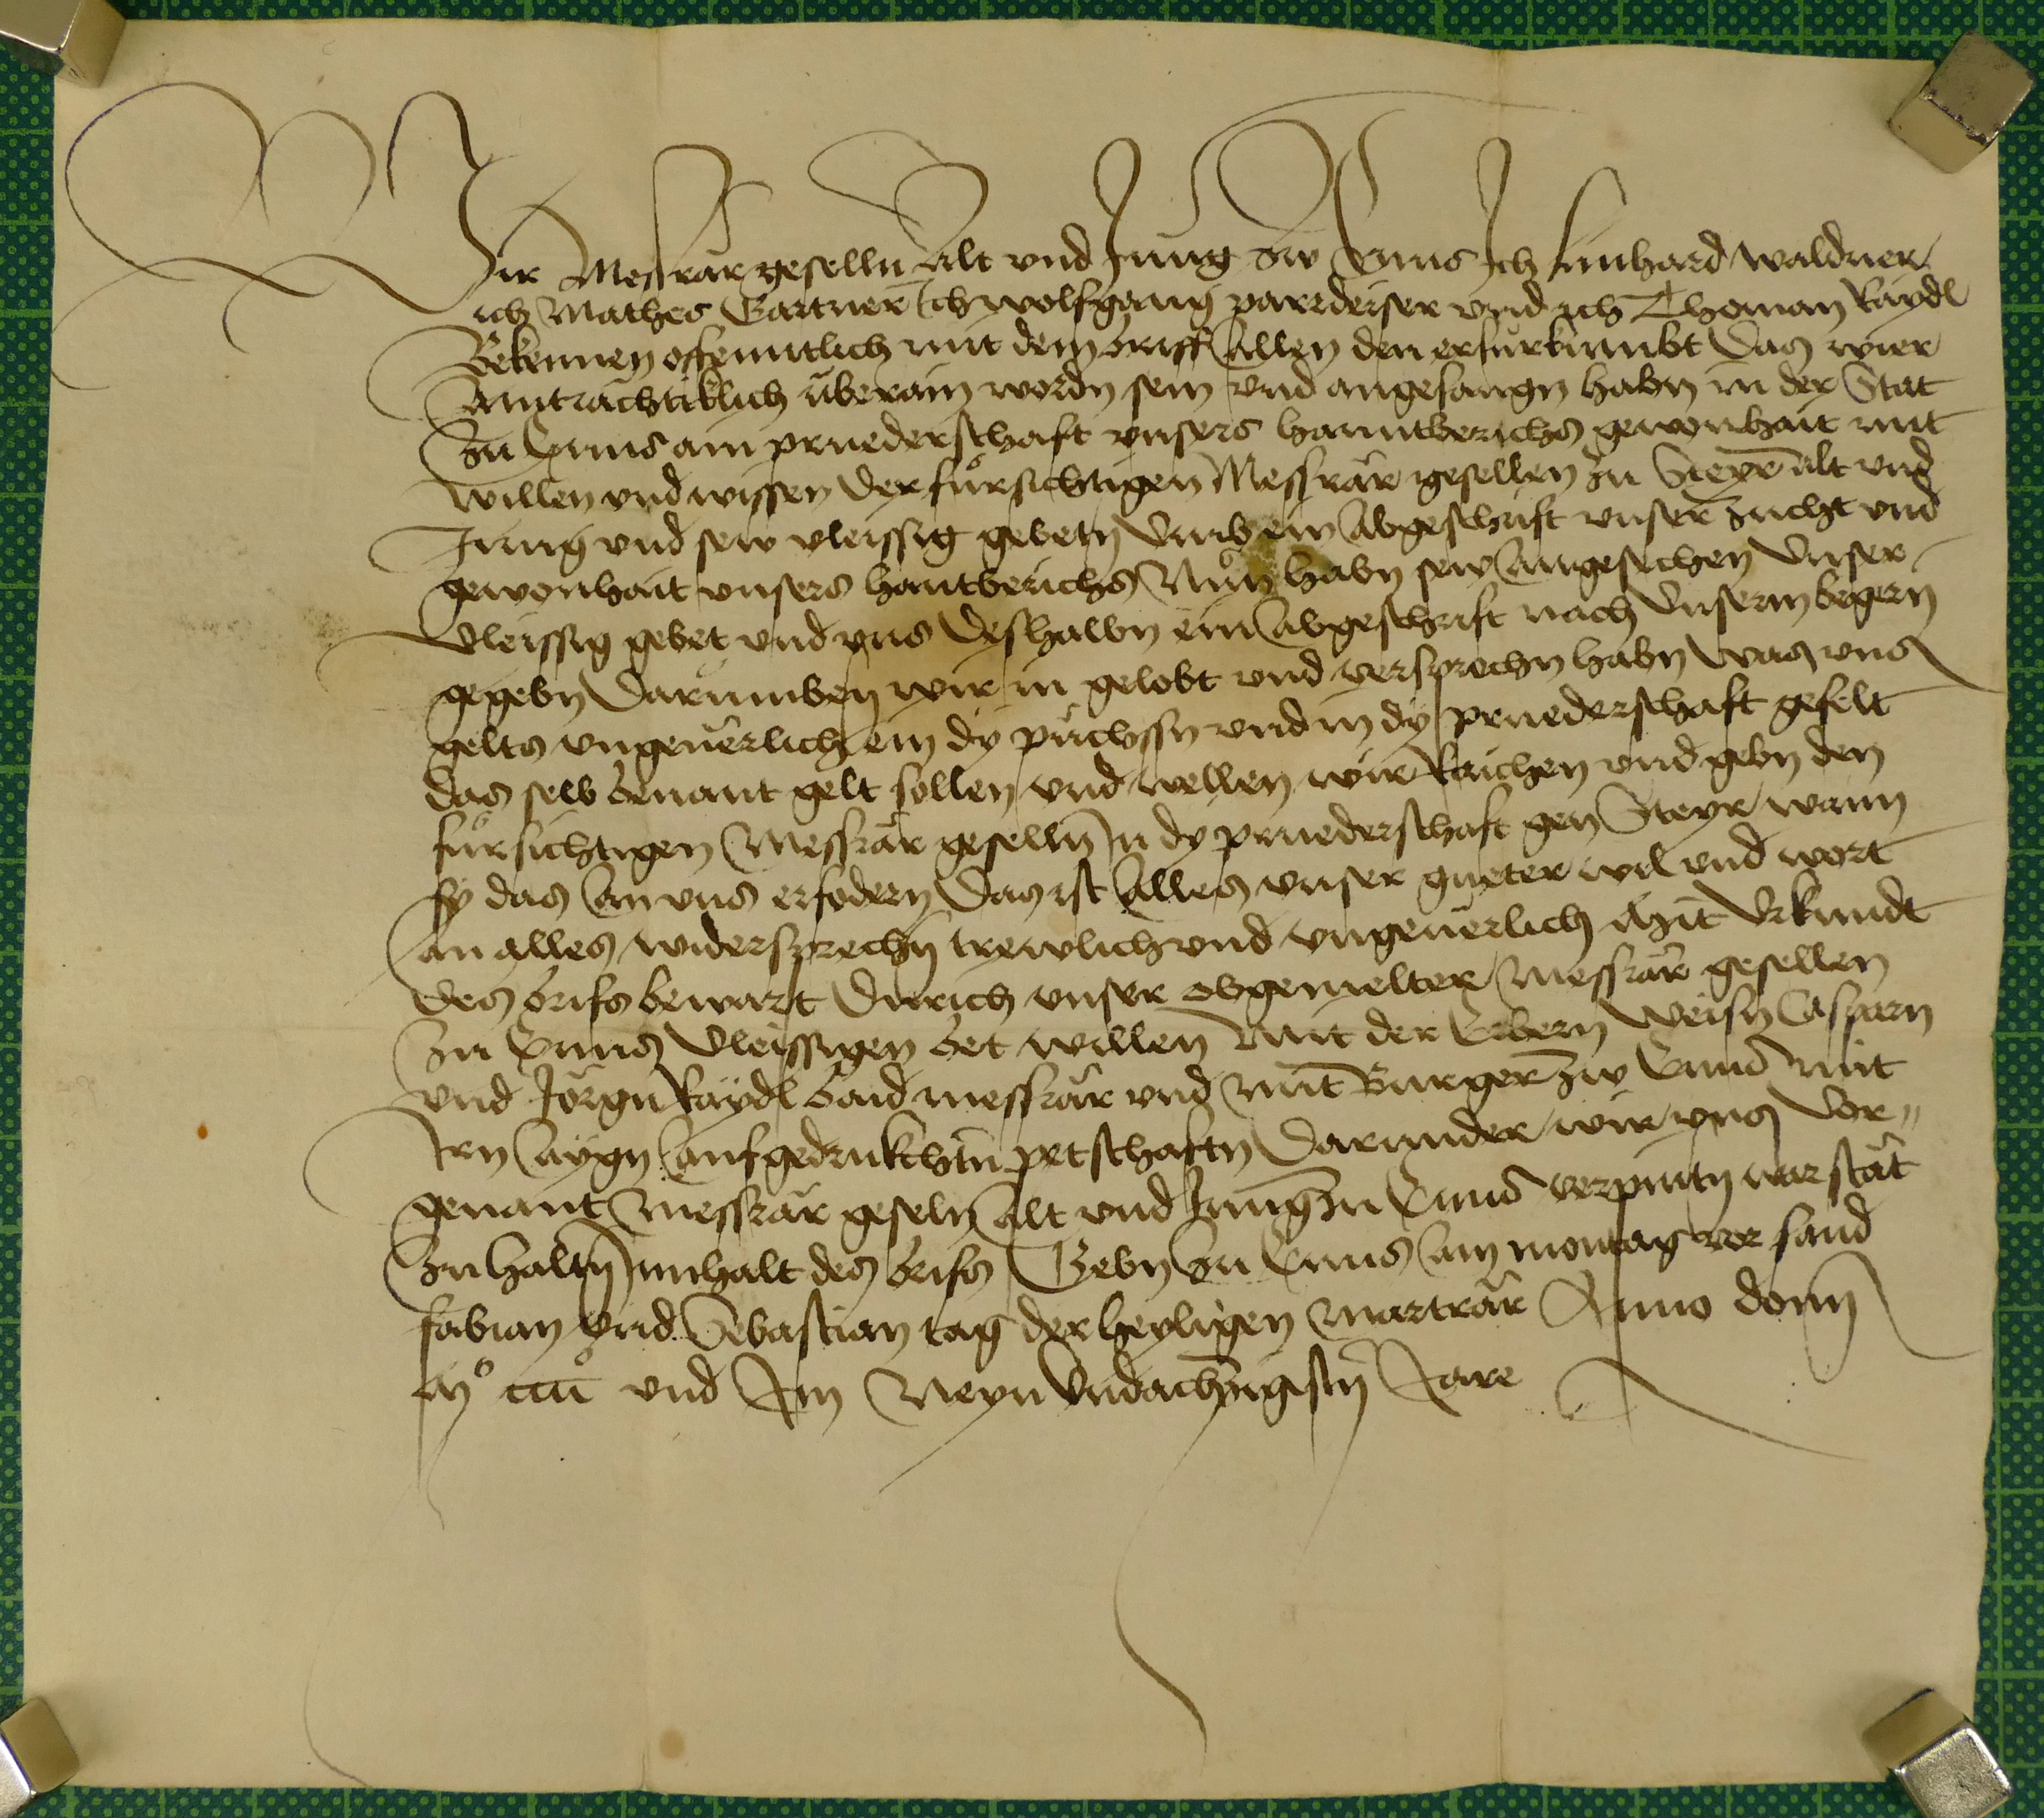 Wir Messrär geselln Alt vnd Jung zw Enns Ich linhard waldner
ich Mathes Gartner Ich wolfgang parrdeiser vnd ich Thoman Raydl
Bekennen offenntlich mit dem briff Allen den er fürkumbt Das wier
Aintrachtiklich überain wordn sein vnd angefangn habn in der Stat
Zu Enns ain pruederschaft vnsers hanntberichs gewonhait mit
willen vnd wissen Der fürsichtigen Messrär gesellen zu Steyr alt vnd
Jung vnd sew vleissig gebetn Vmb ein Abgeschrift vnser zucht vnd
gewonhait vnsers hantberichs Nün habn sew Angesechen Vnser
Vleissig gebet vnd vns Deshalbn ein Abgeschrift nach Vnserm begern
gegebn Darümben wir in gelobt vnd versprechn habn Was vns
gelts vngeuerlich ein dy püchssn vnd in dy pruederschaft gefelt
das selb benant gelt sollen vnd wellen wir Raichen vnd gebn den
fürsichtigen Messrär geselln In dy pruederschaft gen Steyr wann
sy das An vns erfodern Das ist Alles vnser gueter wil vnd wort
An alles widersprechn trewlich vnd vngeuerlich Mit Vrkundt
des brifs bewart Durich vnser obgemelter Messrär gesellen
Zu Enns Vleissigen bet willen Mit der Erbern Weisn Casparn
vnd Jörgn Raydl baid messrär vnd Mit Burger zw Enns mit
Irn Aygn Aufgedrukchtn petschaftn Darunder wir vns Vor„
genant Messrär geseln Alt vnd Jung zu Enns verpintn war stät
Zu haltn Innhalt des brifs Gebn Zu Enns Am montag vor sand
fabian Vnd Sebastian tag der heyligen Marträr Anno domi
mº cccc und Im Neyn Vndachzigistn Jare